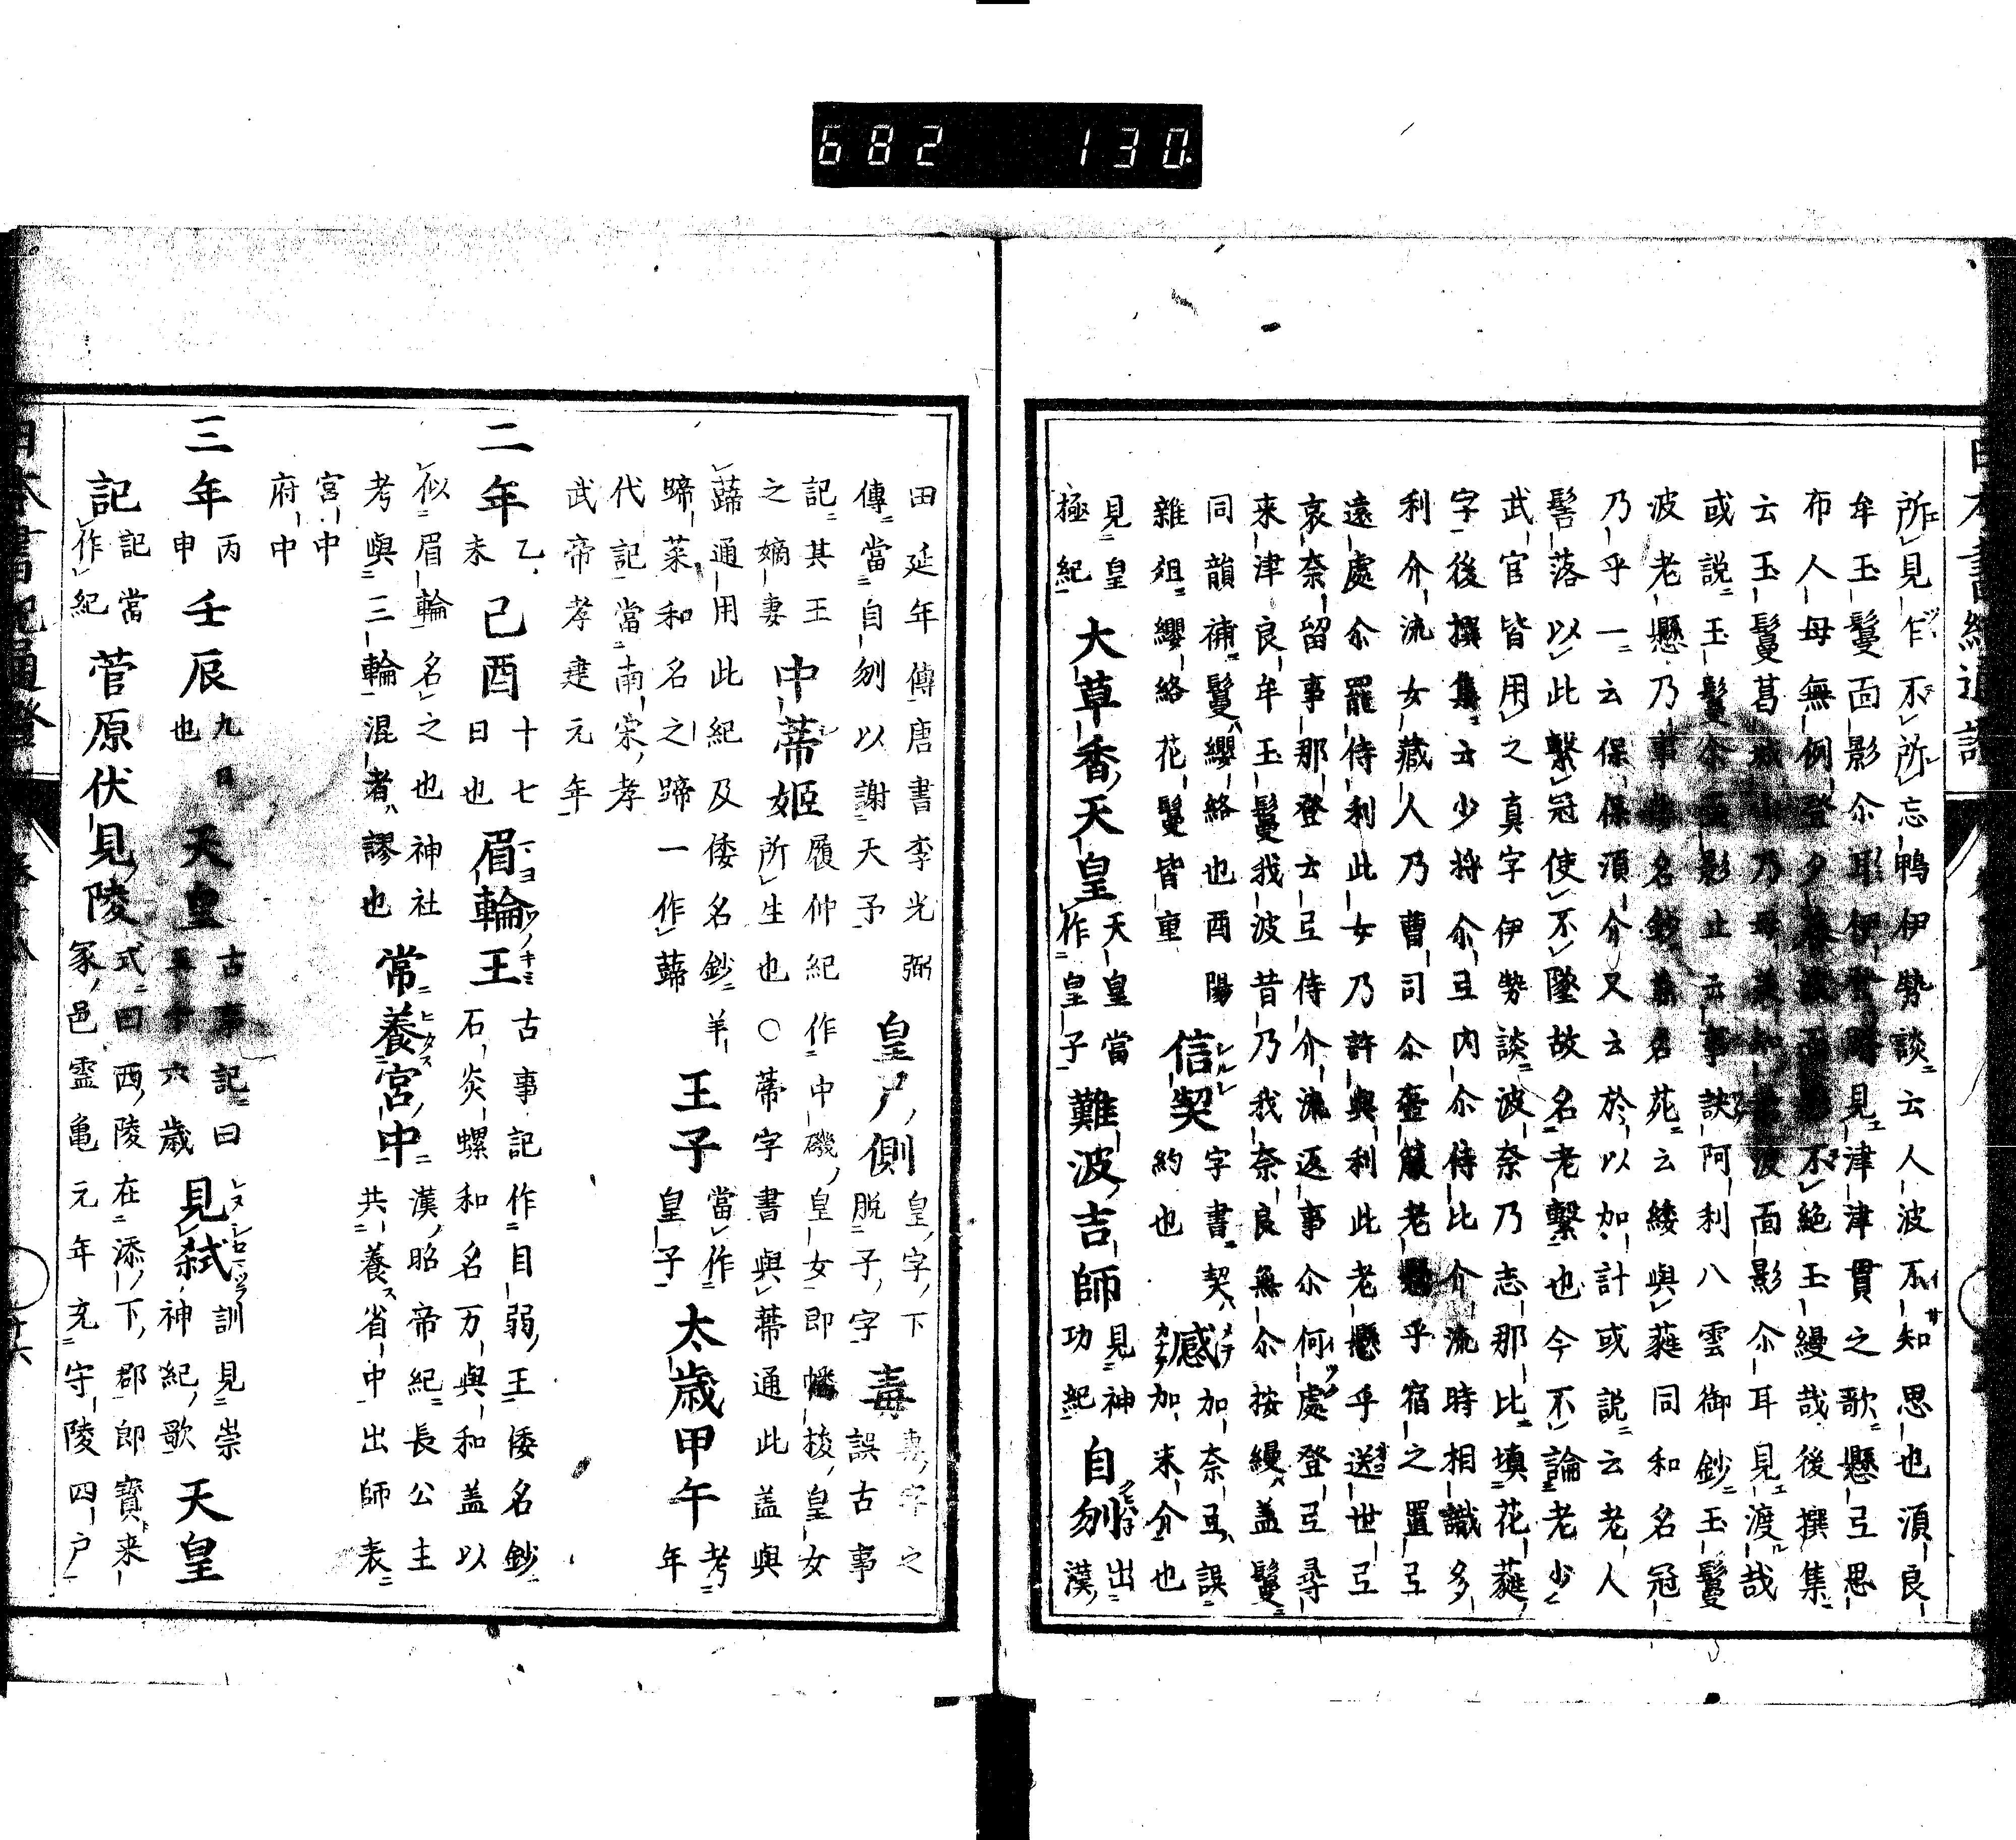 682 130
所見乍不所忘鴨伊勢談云人波不知思也湏良
牟玉鬘面影尒耳伊登　見津津貫之歌懸弖思
布人母無例登夕暮　面影不絶玉縵哉後撰集
云玉鬘葛城山乃　波面影尒耳見渡哉
或説玉鬘尒面影止云事訣阿利八雲御鈔玉鬘
波老懸乃事　名鈔　名苑云緌與蕤同和名冠
乃乎一云保保湏介又云於以加計或説云老人
髻落以此繫冠使不墜故名老繫也今不論老少
武官皆用之真字伊勢談波奈乃志那比填花蕤
字後撰集云少将尒豆内尒侍比介流時相識多
利介流女藏人乃曹司尒壺簶老懸乎宿之置弖
遠處尒罷侍利此女乃許與利此老懸乎送世弖
哀奈留事那登云弖侍介流返事尒何處登弖尋
来津良牟玉鬘我波昔乃我奈良無尒按縵蓋鬘
同韻補鬘纓絡也酉陽
雜俎纓絡花鬘皆重 信契 字書契約也 感 加奈豆誤加末介也
見皇極紀 大草香天皇 天皇當作皇子 難波吉師 見神功紀 自刎 出漢
田延年傳唐書李光弼
傳當自刎以謝天子 皇尸側 皇字下脱子字 毒 妻字之誤古事
記其王之嫡妻 中蒂姫 履仲紀作中磯皇女即幡梭皇女
所生也○蒂字書與蔕通此蓋與
蹛通用此紀及倭名鈔羊
蹄菜和名之蹄一作蹛 王子 當作皇子 太歳甲午 考年
代記當南宋孝
武帝孝建元年
二年 乙未 己酉 十七日也 眉輪王 古事記作目弱王倭名鈔
石炎螺和名万與和蓋以
似眉輪名之也神社
考與三輪混者謬也 常養宮中 漢昭帝紀長公主共養省中出師表
宮中
府中
三年 丙申 壬辰 九日也 天皇 古事記曰五十六歳 見弑 訓見崇神紀歌 天皇
記 記當作紀 菅原伏見陵 式曰西陵在添下郡郎寶来
冢邑霊亀元年充守陵四戸